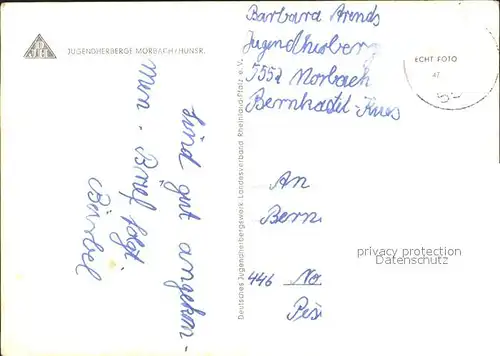 JUGENDHERBERGE MORBACH/HUNSR.
sind gut angekom-
men. Brief folgt
Bärbel
Deutsches Jugendherbergswerk Landesverband Rheinland-Pfalz e. V.
Barbara Arends
Jugendherberg
5552 Morbach
Bernkastel-Kues
ECHT FOTO
An
Bern
446 No
privacy protection
Datenschutz